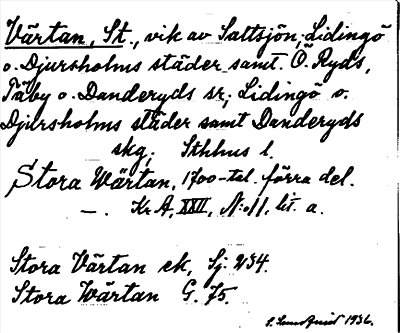 Värtan, St., vik av Saltsjön; Lidingö
o. Djursholms städer samt Ö. Ryds,
Täby o. Danderyds sr; Lidingö o.
Djursholms städer samt Danderyds
skg; Sthlms l.
Stora Wärtan, 1700-tal. förra del.
—. Kr A, XXII, N:o 11, lit. a.
Stora Värtan ek, Sj. 234.
Stora Wärtan G. 75.
1936.